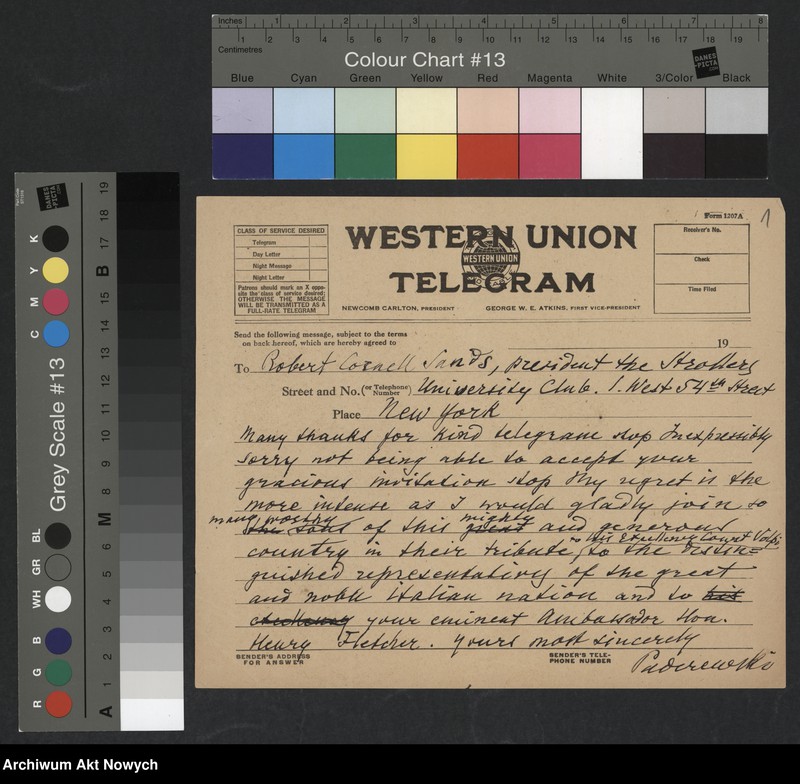 Inches 1 2 3 4 5 6 7 8
Centimetres 1 2 3 4 5 6 7 8 9 10 11 12 13 14 15 16 17 18 19
Colour Chart #13
DANES-PICTA
Blue Cyan Green Yellow Red Magenta White 3/Color Black
Grey Scale #13
DANES-PICTA
K Y M C
BL GR WH B G R
A 1 2 3 4 5 6 M 8 9 10 11 12 13 14 15 B 17 18 19
Form 1207A
1
CLASS OF SERVICE DESIRED
Telegram
Day Letter
Night Message
Night Letter
Patrons should mark an X oppo-
site the class of service desired;
OTHERWISE THE MESSAGE
WILL BE TRANSMITTED AS A
FULL-RATE TELEGRAM
WESTERN UNION
WESTERN UNION
TELEGRAM
NEWCOMB CARLTON, PRESIDENT GEORGE W. E. ATKINS, FIRST VICE-PRESIDENT
Receiver's No.
Check
Time Filed
Send the following message, subject to the terms
on back hereof, which are hereby agreed to
19
To Robert Cornell Sands, president the Strollers
Street and No. (or Telephone Number) University Club. 1. West 54th Street
Place New York
Many thanks for kind telegram stop Inexpressibly
sorry not being able to accept your
gracious invitation stop My regret is the
more intense as I would gladly join to
many worthy mighty
the sons of this great and generous
country in their tribute to His Excellency Count Volpi
to the distin=
guished representative of the great
and noble Italian nation and to his
your eminent Ambassador Hon.
Henry Fletcher. Yours most sincerely
Paderewski
SENDER'S ADDRESS
FOR ANSWER
SENDER'S TELE-
PHONE NUMBER
Archiwum Akt Nowych